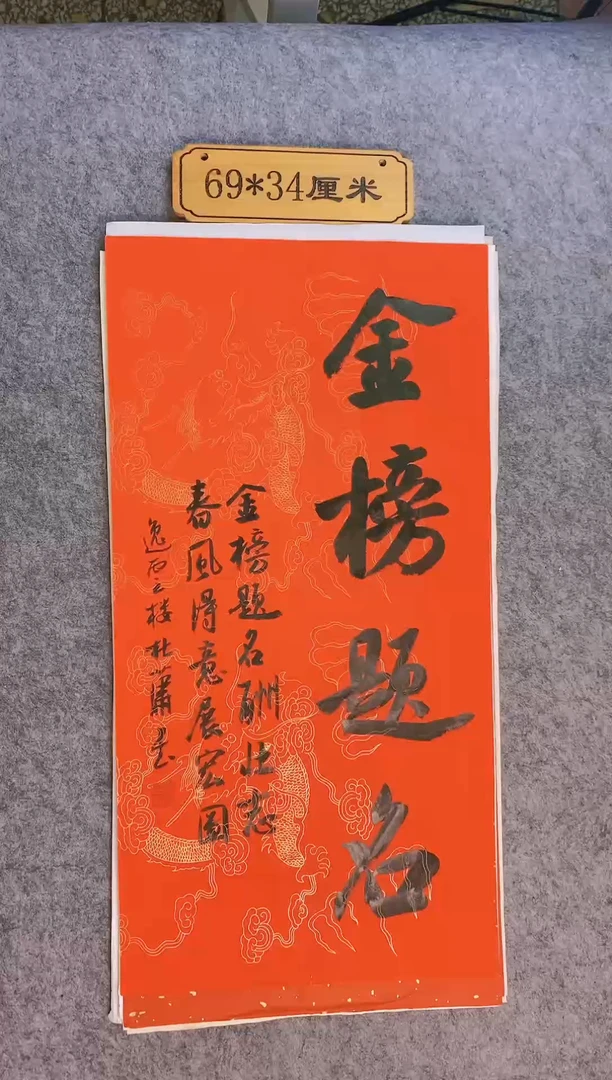 69*34厘米
金榜题名
金榜题名酬壮志
春风得意展宏图
逸石之楼杜萧书